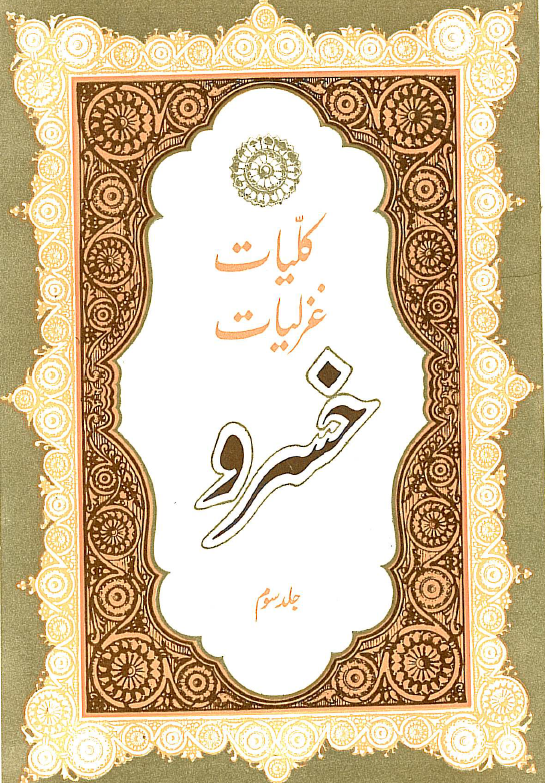 کلّیات
غزلیات
خسرو
جلد سوم